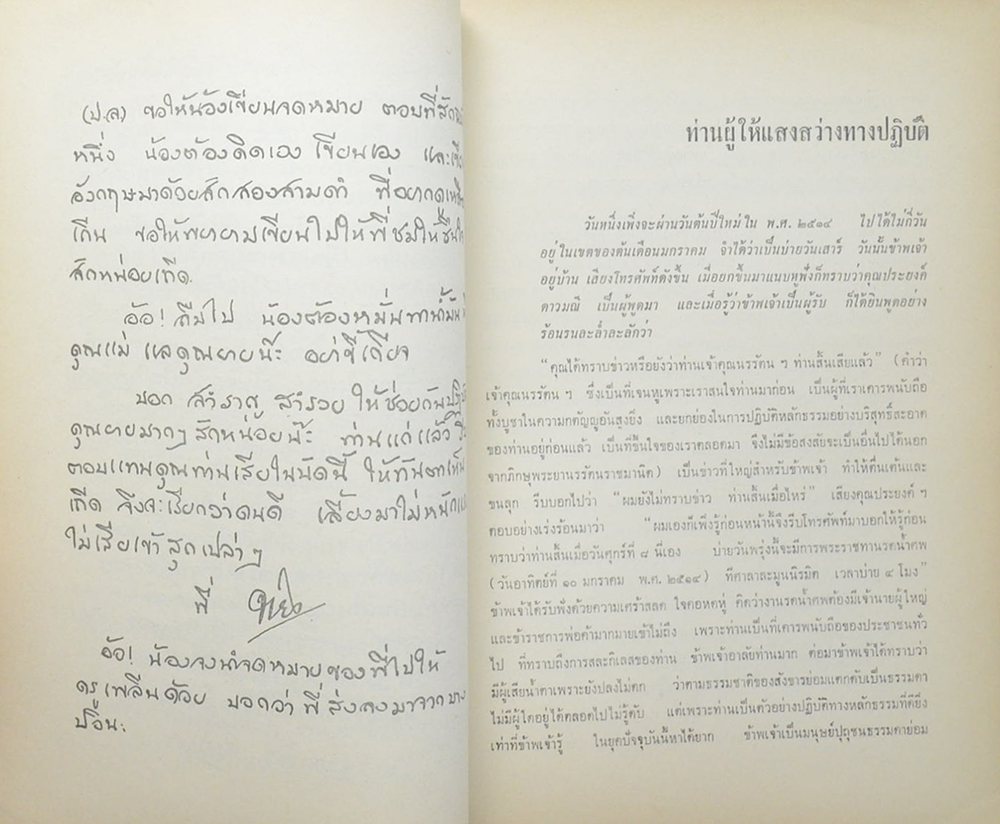 (ป.ล) ขอให้น้องเขียนจดหมาย ตอบที่สัก
หนึ่ง น้องต้องคิดเอง เขียนเอง และ
อังกฤษมาด้วยสักสองสามคำ ที่อยาก
เกิน ขอให้พยายามเขียนไปให้พี่ชมให้ชื่นใจ
สักหน่อยเถิด.
อ้อ! คืนไป น้องต้องหมั่นทำ
คุณแม่ แลคุณยายน๊ะ อย่าขี้เกียจ
บอก สำราญ สำรวย ให้ช่วยกัน
คุณยายมากๆ สักหน่อยน๊ะ ท่านแก่แล้ว
ตอบแทนคุณท่านเสียในบัดนี้ ให้ทันตาเห็น
เถิด จึงจะเรียกว่าคนดี เลี้ยงมาไม่หนัก
ไม่เสียเข้าสุกเปล่าๆ
พี่
อ้อ! น้องจงนำจดหมายของพี่ไปให้
ครูเพลินด้วย บอกว่าพี่ส่งลงมาจากบาง
ปอิน.
ท่านผู้ให้แสงสว่างทางปฏิบัติ
วันหนึ่งเพิ่งจะผ่านวันต้นปีใหม่ใน พ.ศ. ๒๕๑๔ ไปได้ไม่กี่วัน
อยู่ในเขตของต้นเดือนมกราคม จำได้ว่าเป็นบ่ายวันเสาร์ วันนั้นข้าพเจ้า
อยู่บ้าน เสียงโทรศัพท์ดังขึ้น เมื่อยกขึ้นมาแนบหูฟังก็ทราบว่าคุณประยงค์
ดาวมณี เป็นผู้พูดมา และเมื่อรู้ว่าข้าพเจ้าเป็นผู้รับ ก็ได้ยินพูดอย่าง
ร้อนรนละล่ำละลักว่า
“คุณได้ทราบข่าวหรือยังว่าท่านเจ้าคุณนรรัตน ฯ ท่านสิ้นเสียแล้ว” (คำว่า
เจ้าคุณนรรัตน ฯ ซึ่งเป็นที่เจนหูเพราะเราสนใจท่านมาก่อน เป็นผู้ที่เราเคารพนับถือ
ทั้งบูชาในความกตัญญูอันสูงยิ่ง และยกย่องในการปฏิบัติหลักธรรมอย่างบริสุทธิ์สะอาด
ของท่านอยู่ก่อนแล้ว เป็นที่ขึ้นใจของเราตลอดมา จึงไม่มีข้อสงสัยจะเป็นอื่นไปได้นอก
จากภิกษุพระยานรรัตนราชมานิต) เป็นข่าวที่ใหญ่สำหรับข้าพเจ้า ทำให้ตื่นเต้นและ
ขนลุก รีบบอกไปว่า “ผมยังไม่ทราบข่าว ท่านสิ้นเมื่อไหร่” เสียงคุณประยงค์ ฯ
ตอบอย่างเร่งร้อนมาว่า “ผมเองก็เพิ่งรู้ก่อนหน้านี้จึงรีบโทรศัพท์มาบอกให้รู้ก่อน
ทราบว่าท่านสิ้นเมื่อวันศุกร์ที่ ๘ นี่เอง บ่ายวันพรุ่งนี้จะมีการพระราชทานรดน้ำศพ
(วันอาทิตย์ที่ ๑๐ มกราคม พ.ศ. ๒๕๑๔) ที่ศาลาละมูนนิรมิต เวลาบ่าย ๔ โมง”
ข้าพเจ้าได้รับฟังด้วยความเศร้าสลด ใจคอหดหู่ คิดว่างานรดน้ำศพต้องมีเจ้านายผู้ใหญ่
และข้าราชการพ่อค้ามากมายเข้าไม่ถึง เพราะท่านเป็นที่เคารพนับถือของประชาชนทั่ว
ไป ที่ทราบถึงการสละกิเลสของท่าน ข้าพเจ้าอาลัยท่านมาก ต่อมาข้าพเจ้าได้ทราบว่า
มีผู้เสียน้ำตาเพราะยังปลงไม่ตก ว่าตามธรรมชาติของสังขารย่อมแตกดับเป็นธรรมดา
ไม่มีผู้ใดอยู่ได้ตลอดไปไม่รู้ดับ แต่เพราะท่านเป็นตัวอย่างปฏิบัติทางหลักธรรมที่ดียิ่ง
เท่าที่ข้าพเจ้ารู้ ในยุคปัจจุบันนี้หาได้ยาก ข้าพเจ้าเป็นมนุษย์ปุถุชนธรรมดาย่อม